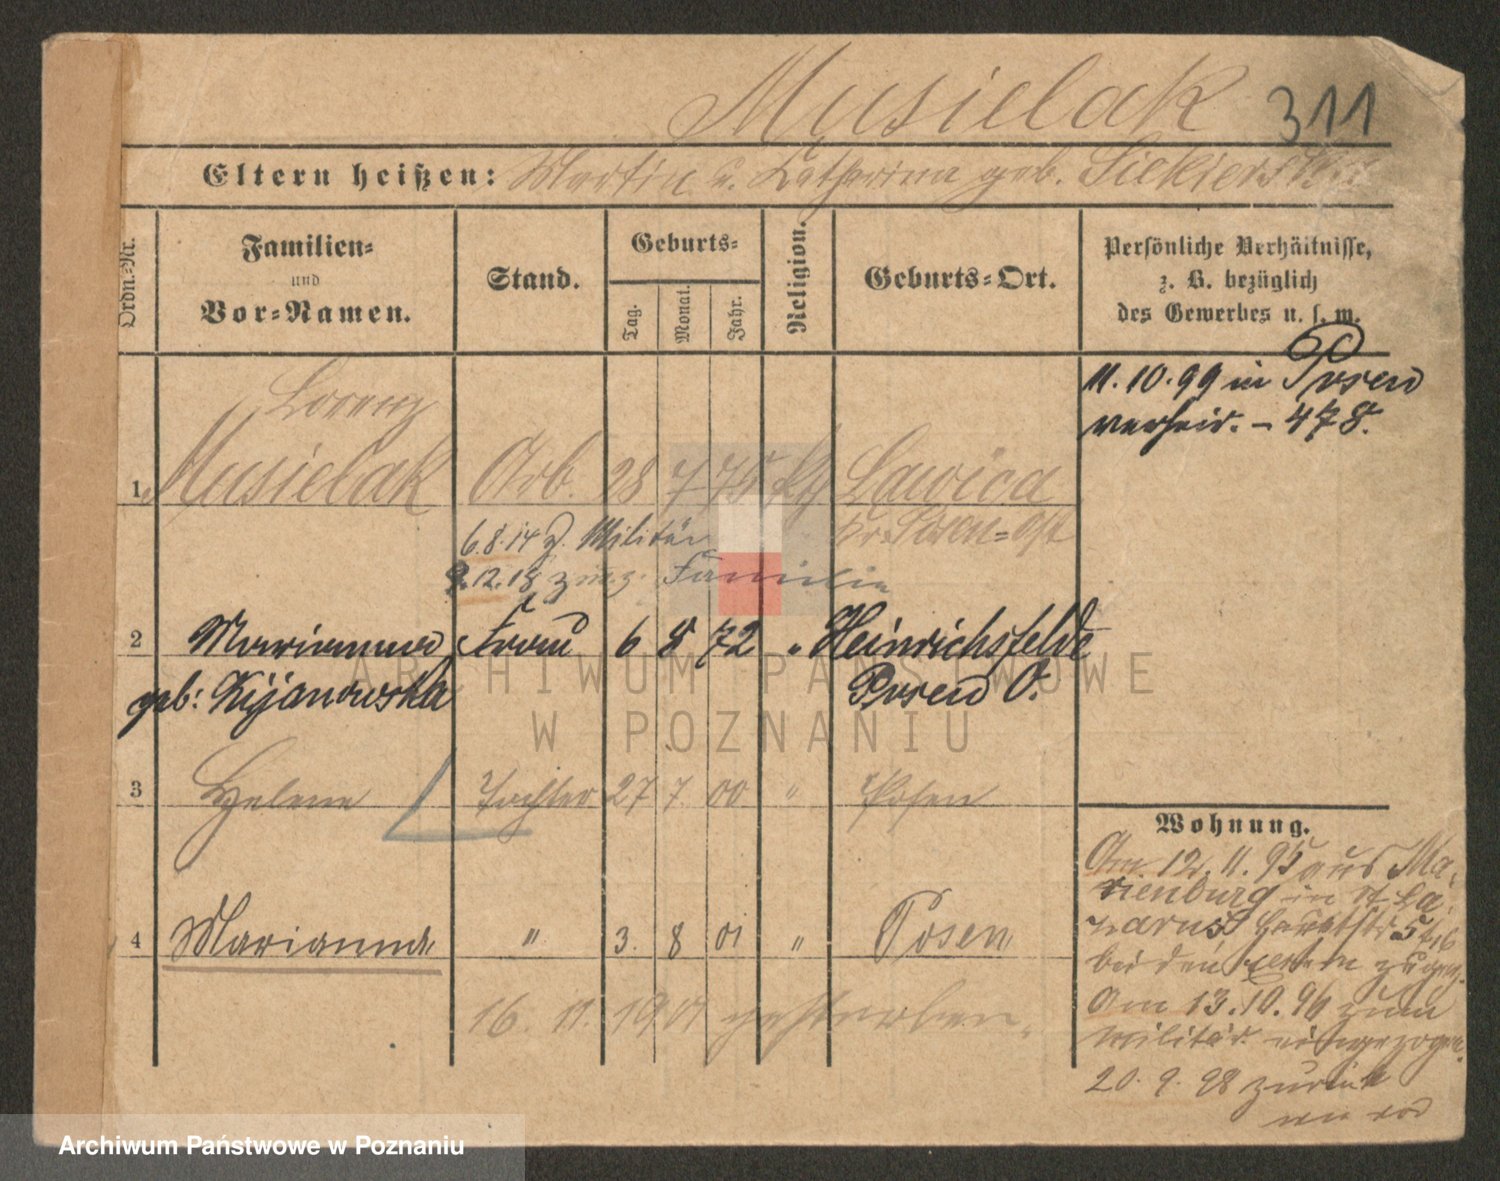 Musielak 311
Eltern heißen: Martin u. Katharina geb. Siekierska
Ordn.-Nr.
Familien-
und
Vor-Namen.
Stand.
Geburts-
Tag.
Monat.
Jahr.
Religion.
Geburts-Ort.
Persönliche Verhältnisse,
z. B. bezüglich
des Gewerbes u. s. w.
11.10.99 in Posen
verheir. – 478.
Lorenz
1 Musielak Arb. 28 7 75 kh Lawica
Kr. Posen-Ost
6.8.14 z. Militär
9.12.18 zur Familie
2 Marianna Frau 6 8 72 " Heinrichsfelde
geb: Kijanowska Posen O.
ARCHIWUM PAŃSTWOWE
W POZNANIU
3 Helene Tochter 27 7. 00 " Posen
4 Marianna " 3. 8 01 " Posen
16. 11. 1901 gestorben.
Wohnung.
Am 12. 11. 95 aus Ma-
rienburg in St La-
zarus 5
bei den Eltern zugez.
Am 13.10.96 zum
Militär eingezogen.
20. 9. 98 zurück
Archiwum Państwowe w Poznaniu